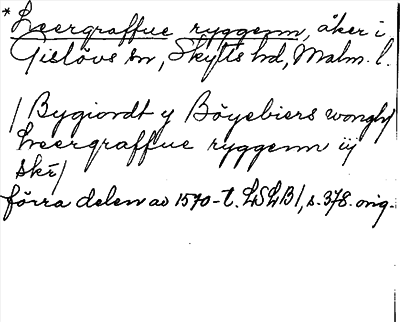 * Leergraffue ryggenn, åker i
Gislövs sn, Skytts hd, Malm. l.
/Bygiordt y Böyebiers wongh/
Leergraffue ryggenn iij
skr/
förra delen av 1570-t. LSLB1, s. 378. orig.